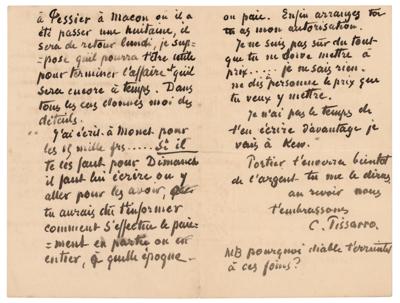 à Tessier à Macon où il a
été passer une huitaine, il
sera de retour lundi, je sup=
=pose qu'il pourra t'être utile
pour terminer l'affaire & qu'il
sera encore à temps. Dans
tous les cas donnes moi des
détails.
J'ai écrit à Monet pour
les 15 mille frs..... Si il
te les faut pour Dimanche
il faut lui écrire ou y
aller pour les avoir,
tu aurais du t'informer
comment s'effectue le paie=
=ment en partie ou en
entier, à quelle époque.
ou paie. Enfin arranges toi
tu as mon autorisation.
Je ne suis pas sûr du tout
que tu ne doive mettre à
prix.... je ne sais rien.
ne dis à personne le prix que
tu veux y mettre.
Je n'ai pas le temps de
t'en écrire d'avantage je
vais à Kew.
Portier t'enverra bientôt
de l'argent tu me le diras,
au revoir nous
t'embrassons
C. Pissarro.
NB pourquoi diable t'éreintes
à ces foins?